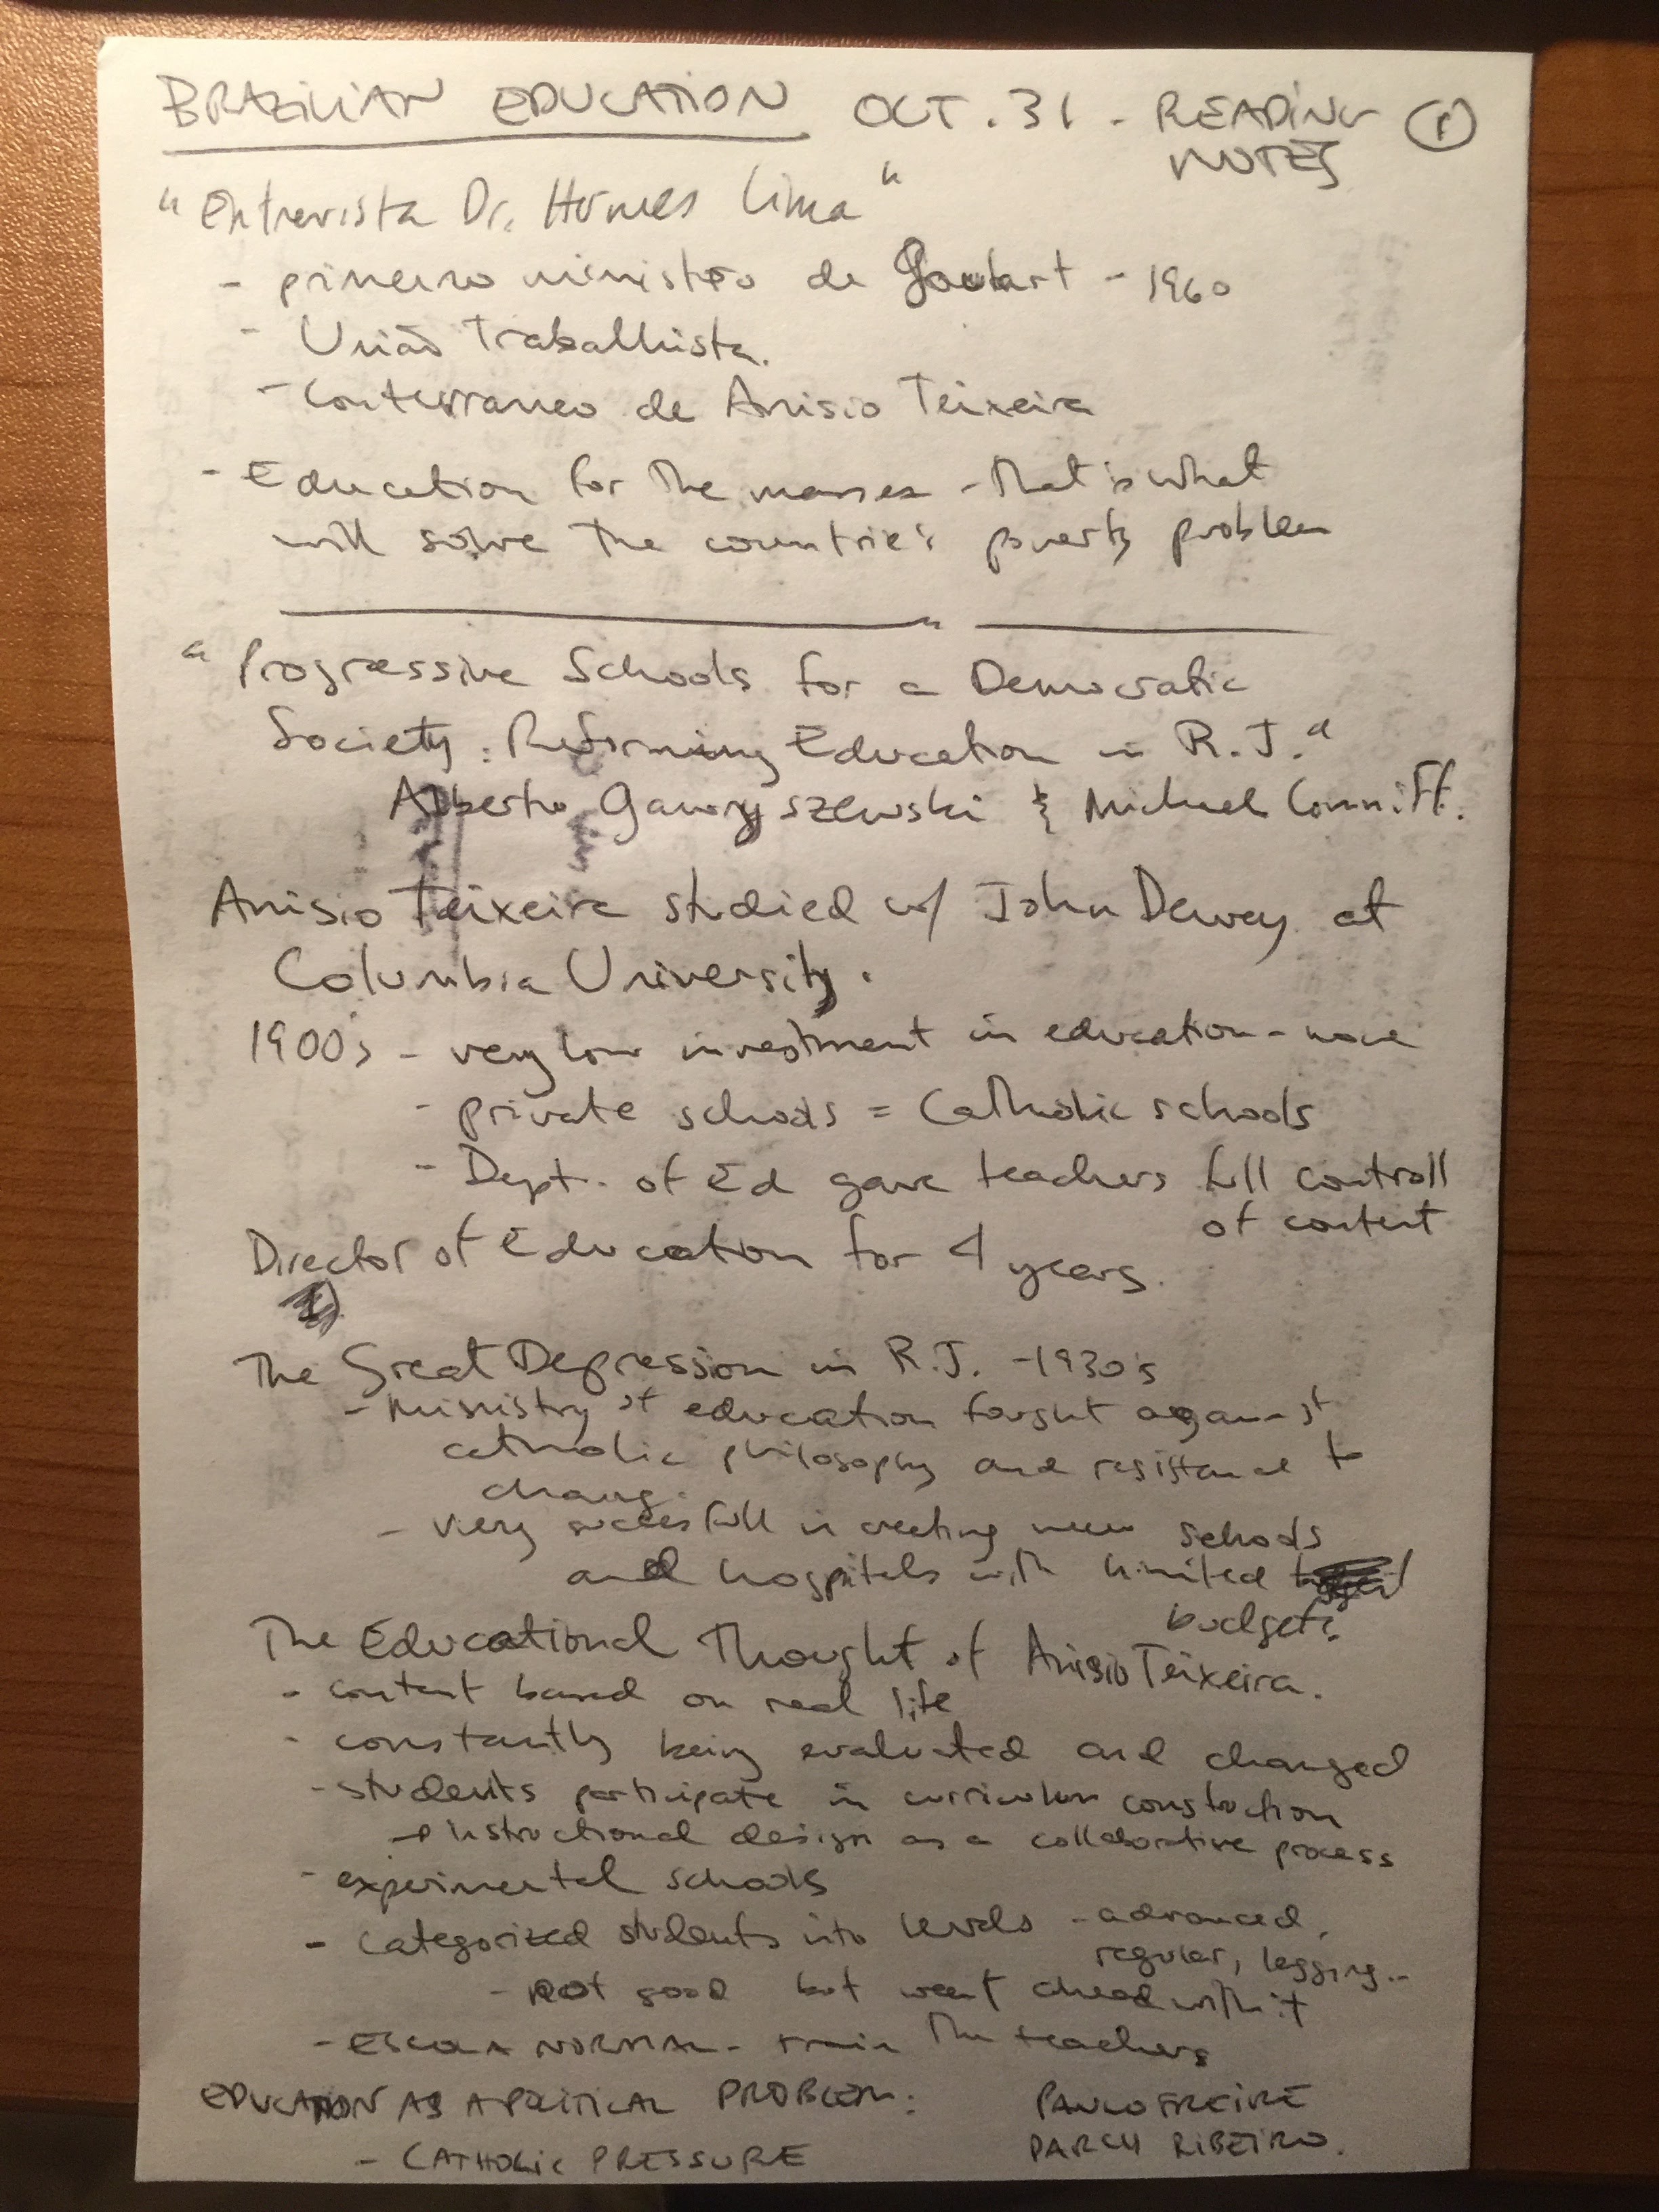 BRAZILIAN EDUCATION OCT. 31 - READING ①
NOTES
"Entrevista Dr. Hermes Lima"
- primeiro ministro de Goulart - 1960
- União Traballhista.
- Conterraneo de Anisio Teixeira
- Education for the masses - that is what
will solve the countrie's poverty problem
"Progressive Schools for a Democratic
Society : Reforming Education in R.J."
Alberto Gawryszewski & Michael Conniff.
Anisio Teixeira studied w/ John Dewey at
Columbia University.
1900's - very low investment in education - none
- private schools = Catholic schools
- Dept. of Ed gave teachers full controll
of content
Director of Education for 4 years.
The Great Depression in R.J. - 1930's
- Ministry of education fought against
catholic philosophy and resistance to
change.
- very succesfull in creating new schools
and hospitals with limited
budgets.
The Educational Thought of Anisio Teixeira.
- content based on real life
- constantly being evaluated and changed
- students participate in curriculum constuction
→ instructional design as a collaborative process
- experimental schools
- Categorized students into levels - advanced,
regular, lagging..
- not good but went ahead with it
- ESCOLA NORMAL - train the teachers
EDUCATION AS A POLITICAL PROBLEM: PAULO FREIRE
- CATHOLIC PRESSURE DARCY RIBEIRO.